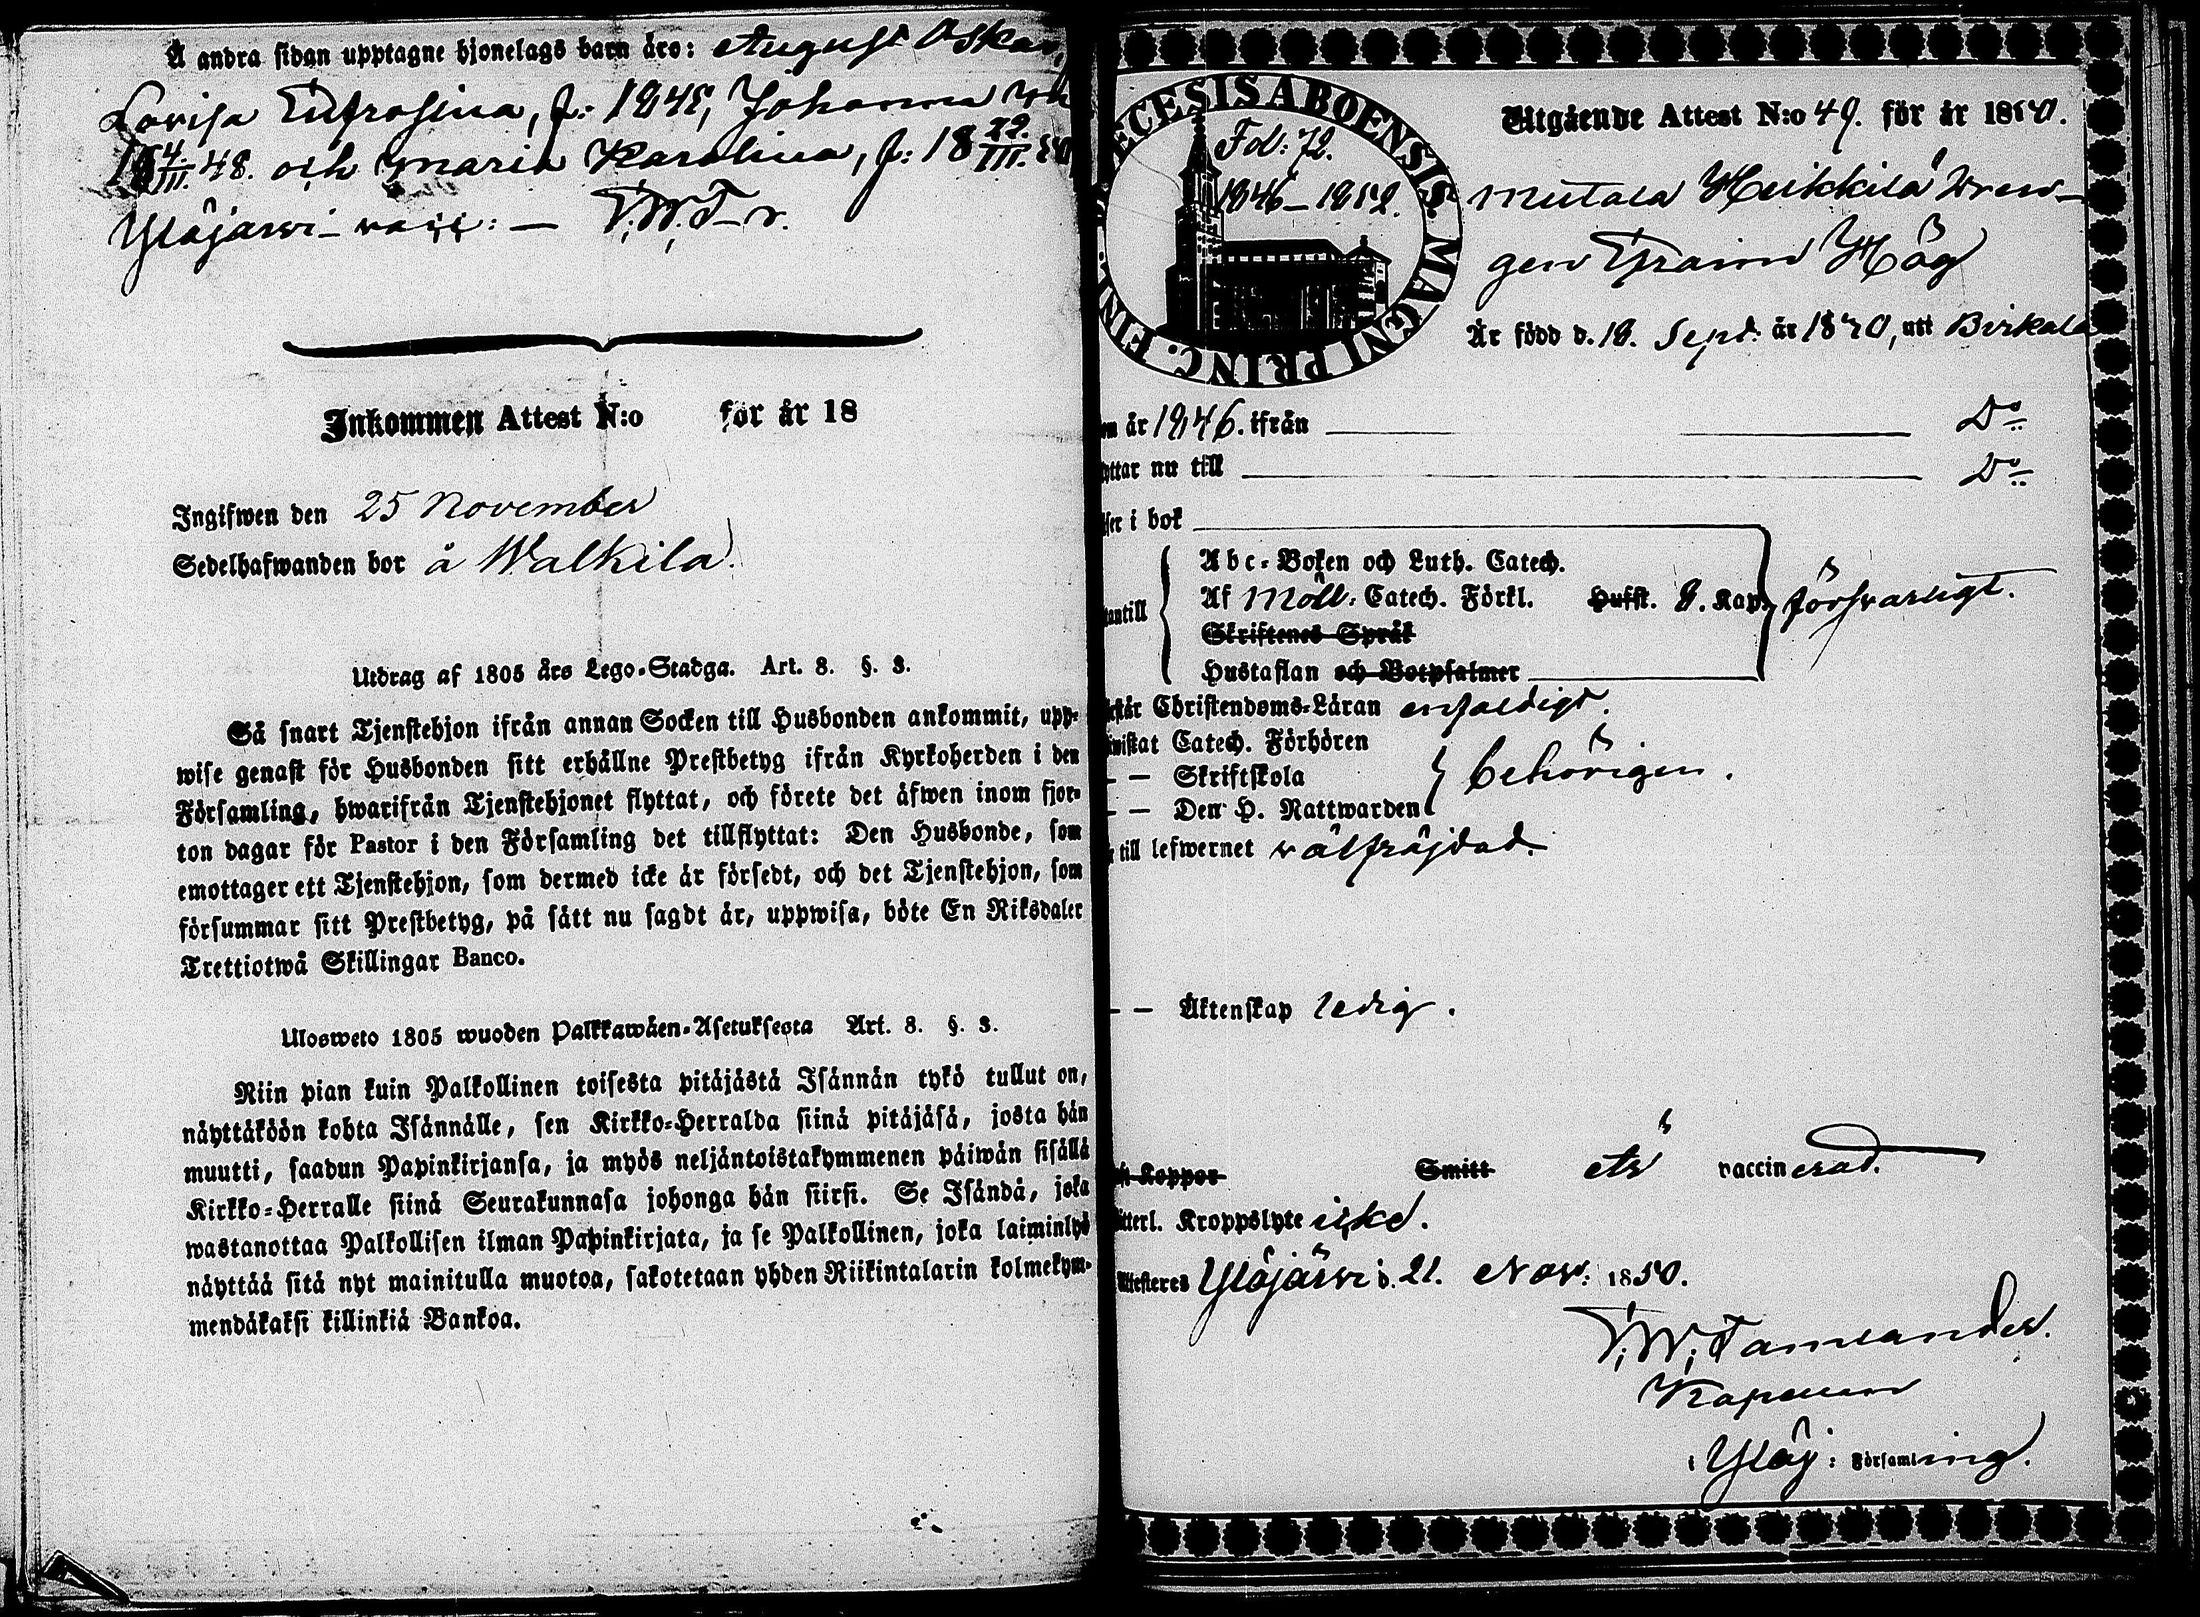 Å andra sidan upptagne hjonelags barn äro: August Oskar,
Lovisa Eufrosina, f: 1845, Johanna
18 4/III. 48. och Maria Karolina, f: 18 22./III. 50
Ylöjärvi — vacc: — V. W. T—r.
Inkommen Attest N:o för år 18
Ingifwen den 25 November
Sedelhafwanden bor å Walkila.
Utdrag af 1805 års Lego-Stadga. Art. 8. §. 3.
Så snart Tjenstehjon ifrån annan Socken till Husbonden ankommit, upp-
wise genast för Husbonden sitt erhållne Prestbetyg ifrån Kyrkoherden i den
Församling, hwarifrån Tjenstehjonet flyttat, och förete det äfwen inom fjor-
ton dagar för Pastor i den Församling det tillflyttat: Den Husbonde, som
emottager ett Tjenstehjon, som dermed icke är försedt, och det Tjenstehjon, som
försummar sitt Prestbetyg, på sätt nu sagdt är, uppwisa, böte En Riksdaler
Trettiotwå Skillingar Banco.
Ulosweto 1805 wuoden Palkkawäen-Asetuksesta Art. 8. §. 3.
Niin pian kuin Palkollinen toisesta pitäjästä Isännän tykö tullut on,
näyttäköön kohta Isännälle, sen Kirkko-Herralda siinä pitäjäsä, josta hän
muutti, saadun Papinkirjansa, ja myös neljäntoistakymmenen päiwän sisällä
Kirkko-Herralle siinä Seurakunnasa johonga hän siirsi. Se Isändä, joka
wastanottaa Palkollisen ilman Papinkirjata, ja se Palkollinen, joka laiminlyö
näyttää sitä nyt mainitulla muotoa, sakotetaan yhden Riikintalarin kolmekym-
mendäkaksi killinkiä Bankoa.
DIOECESIS ABOENSIS. MAGNI PRINC. FINL.
Fol: 72.
1846–1852.
Utgående Attest N:o 49. för år 1850.
Mutala Heikkilä Dren-
gen Frans Hög
Är född d. 18. Sept. år 1820, uti Birkala
år 1846. ifrån Do
ttar nu till Do
ser i bok
antill
Abc-Boken och Luth. Catech.
Af Möll. Catech. Förkl. Hufst. 8. Kap. försvarligt.
Skriftenes Språk
Hustaflan och Botpsalmer
står Christendoms-Läran enfaldigt.
wistat Catech. Förhören
— — Skriftskola behörigen.
— — Den H. Nattwarden
till lefwernet välfräjdad.
— — Äktenskap ledig.
Koppor Smitt är vaccinerad.
tterl. Kroppslyte icke.
Attesteres Ylöjärvi d. 21. Nov: 1850.
V. W. Tamlander.
Kapellan
i Ylöj: Församling.